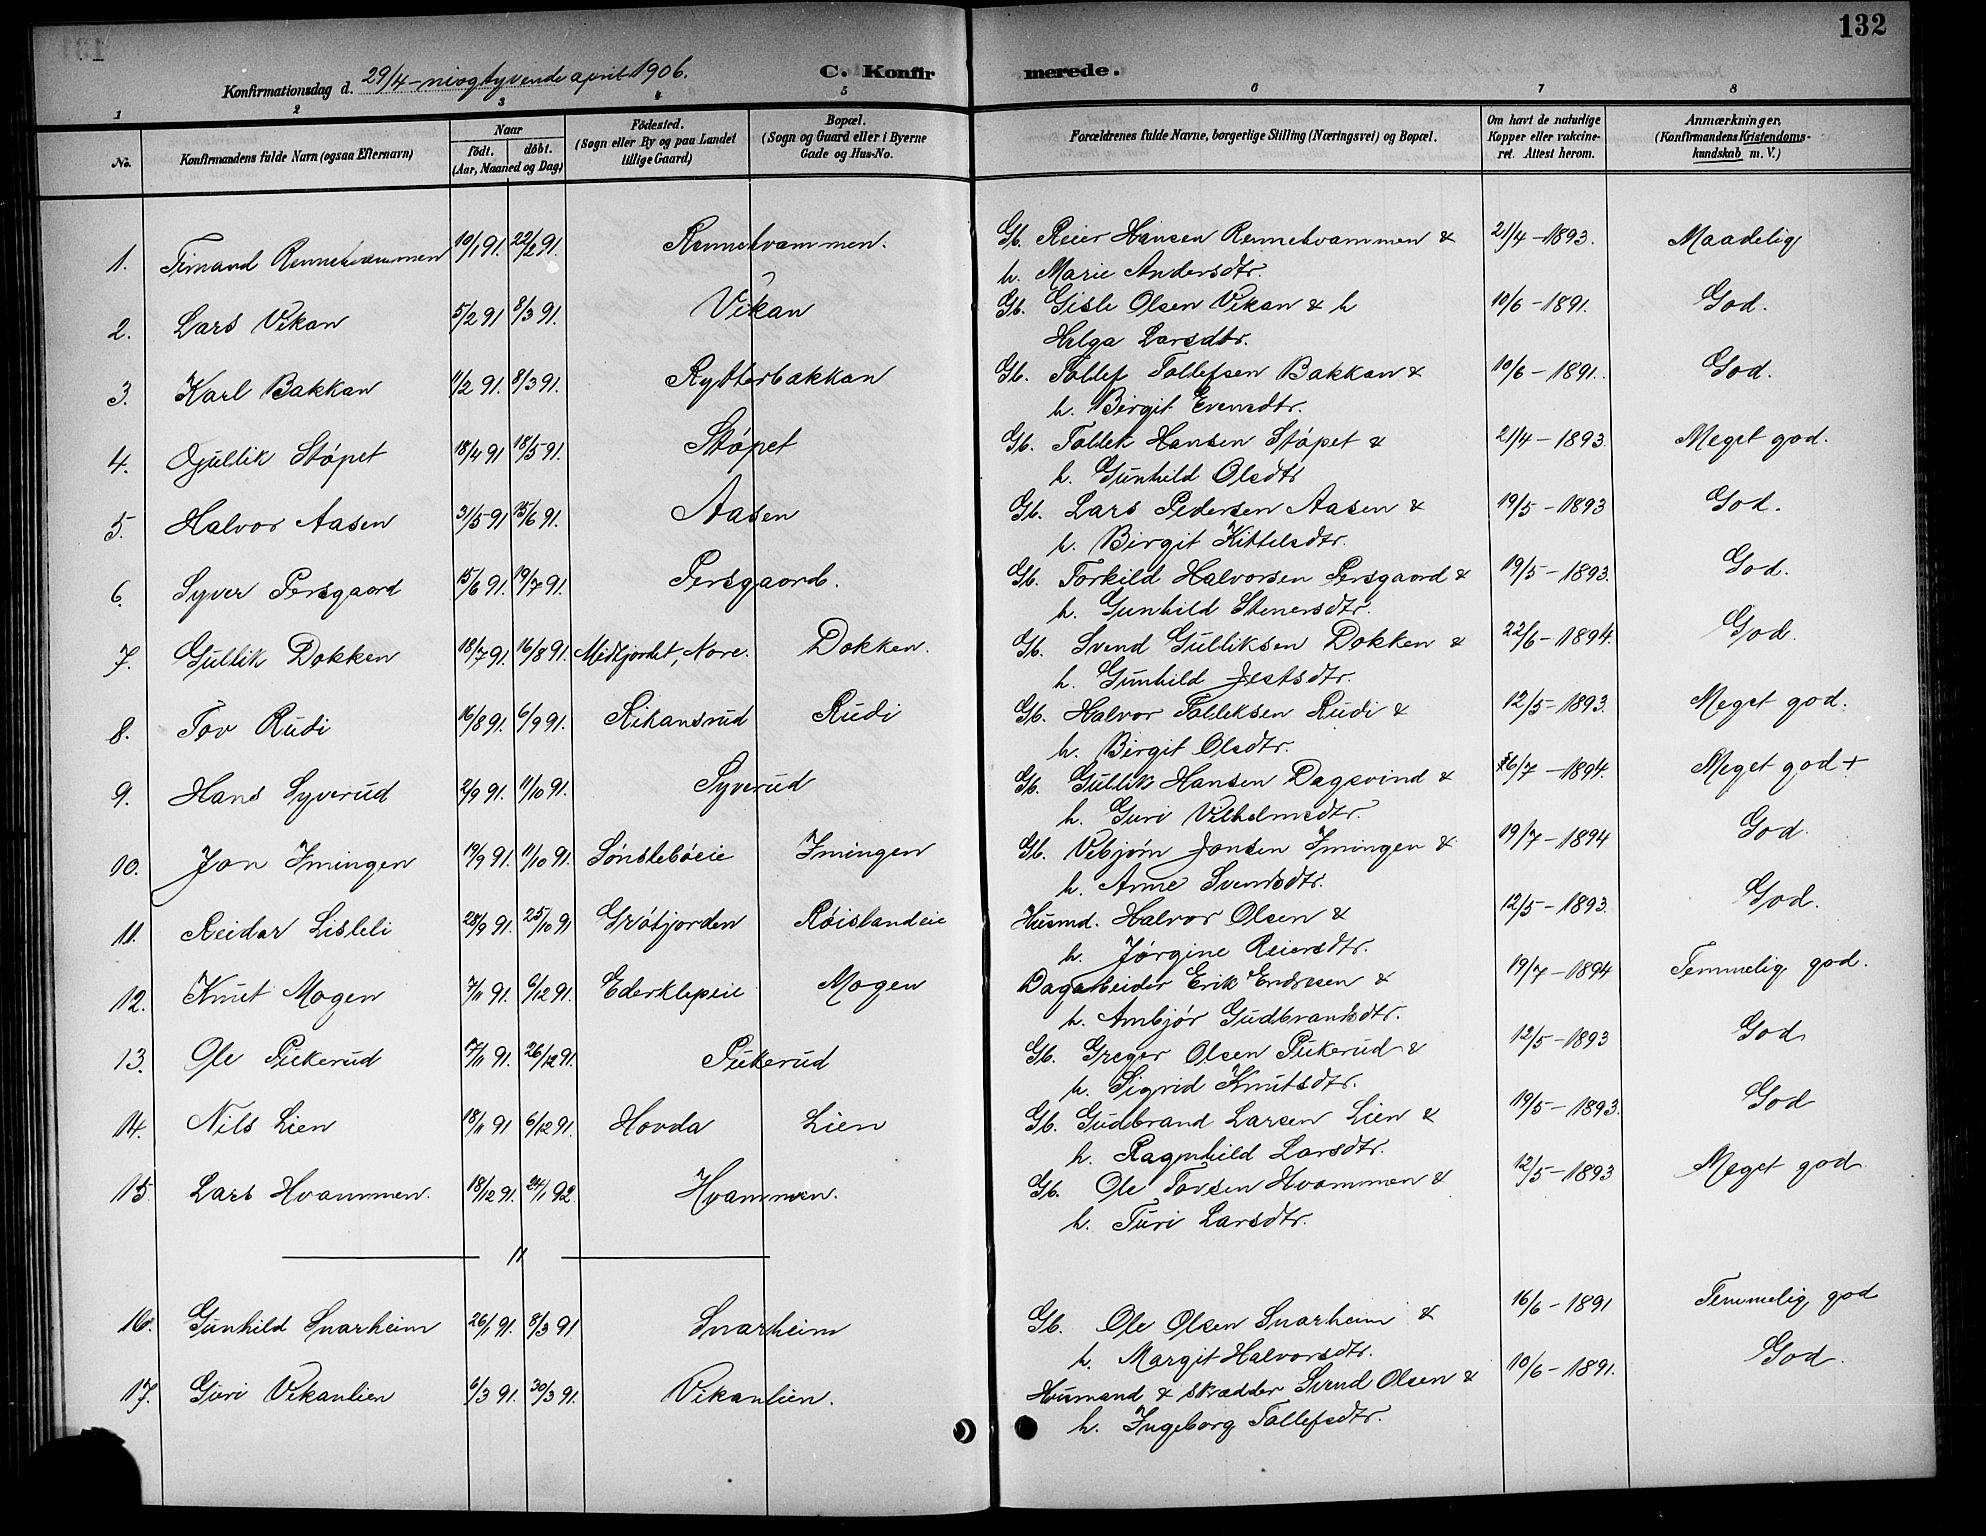 132
Konfirmationsdag d. 29/4 - niogtyvende april 1906. C. Konfirmerede.
1 2 3 4 5 6 7 8
No. Konfirmandens fulde Navn (ogsaa Efternavn) Naar født. døbt. (Aar, Maaned og Dag) Fødested. (Sogn eller By og paa Landet tillige Gaard) Bopæl. (Sogn og Gaard eller i Byerne Gade og Hus-No. Forældrenes fulde Navne, borgerlige Stilling (Næringsvei) og Bopæl. Om havt de naturlige Kopper eller vakcineret. Attest herom. Anmærkninger, (Konfirmandens Kristendomskundskab m. V.)
1. Timand Rennehvammen 10/1 91. 22/2 91. Rennehvammen. Gb. Reier Hansen Rennehvammen & 21/4 - 1893. Maadelig
h. Marie Andersdtr.
2. Lars Vikan 5/2 91 8/3 91. Vikan Gb. Gisle Olsen Vikan & h 10/6 - 1891. God.
Helga Larsdtr.
3. Karl Bakkan 11/2 91. 8/3 91. Rytterbakkan Gb. Tollef Tollefsen Bakkan & 10/6 - 1891. God.
h. Birgit Evensdtr.
4. Gullik Støpet 18/4 91 18/5 91. Støpet Gb. Tollek Hansen Støpet & 21/4 - 1893. Meget god.
h. Gunhild Olsdtr
5. Halvor Aasen 31/5 91 25/6 91. Aasen Gb. Lars Pedersen Aasen & 19/5 - 1893 God.
h. Birgit Kittelsdtr.
6. Syver Persgaard 15/6 91. 19/7 91. Persgaard. Gb. Torkild Halvorsen Persgaard & 19/5 - 1893. God.
h. Gunhild Stenersdtr.
7. Gullik Dokken 18/7 91. 16/8 91. Midtjordet, Nore. Dokken. Gb. Svend Gulliksen Dokken & 22/6 - 1894. God.
h. Gunhild Jestsdtr.
8. Tov Rudi 16/8 91. 6/9 91. Rikansrud Rudi Gb. Halvor Tolleksen Rudi & 12/5 - 1893. Meget god.
h. Birgit Olsdtr.
9. Hans Syverud 2/9 91. 11/10 91. Syverud Gb. Gullik Hansen Dagsvind & 26/7 - 1894. Meget god +
h. Guri Vilhelmsdtr.
10. Jon Imingen 19/9 91. 11/10 91. Sønslebøeie Imingen Gb. Vebjørn Jonsen Imingen & 19/7 - 1894 God.
h. Anne Svendsdtr.
11. Reidar Lisleli 28/9 91. 25/10 91 Grøtjorden Røislandeie Husmd. Halvor Olsen & 12/5 - 1893. God.
h. Jørgine Reiersdtr.
12. Knut Mogen 7/11 91. 6/12 91. Ederklepeie Mogen Dagarbeider Erik Endresen & 19/7 - 1894 Temmelig god.
h. Ambjør Gudbrandsdtr.
13. Ole Pukerud 7/11 91. 26/12 91. Pukerud Gb. Greger Olsen Pukerud & 12/5 - 1893 God
h. Sigrid Knutsdtr.
14. Nils Lien 18/11 91 6/12 91. Hovda Lien Gb. Gudbrand Larsen Lien & 19/5 - 1893. God
h. Ragnhild Larsdtr.
15 Lars Hvammen. 18/12 91. 24/1 92. Hvammen. Gb. Ole Torsen Hvammen & 12/5 - 1893 Meget god
h. Turi Larsdtr.
16. Gunhild Snarheim 26/1 91. 8/3 91 Snarheim Gb. Ole Olsen Snarheim & 16/6 - 1891 Temmelig god
h. Margit Halvorsdtr.
17. Guri Vikanlien 6/3 91. 30/3 91. Vikanlien. Husmand & skrædder Svend Olsen & 10/6 - 1891. God.
h. Ingeborg Tollefsdtr.